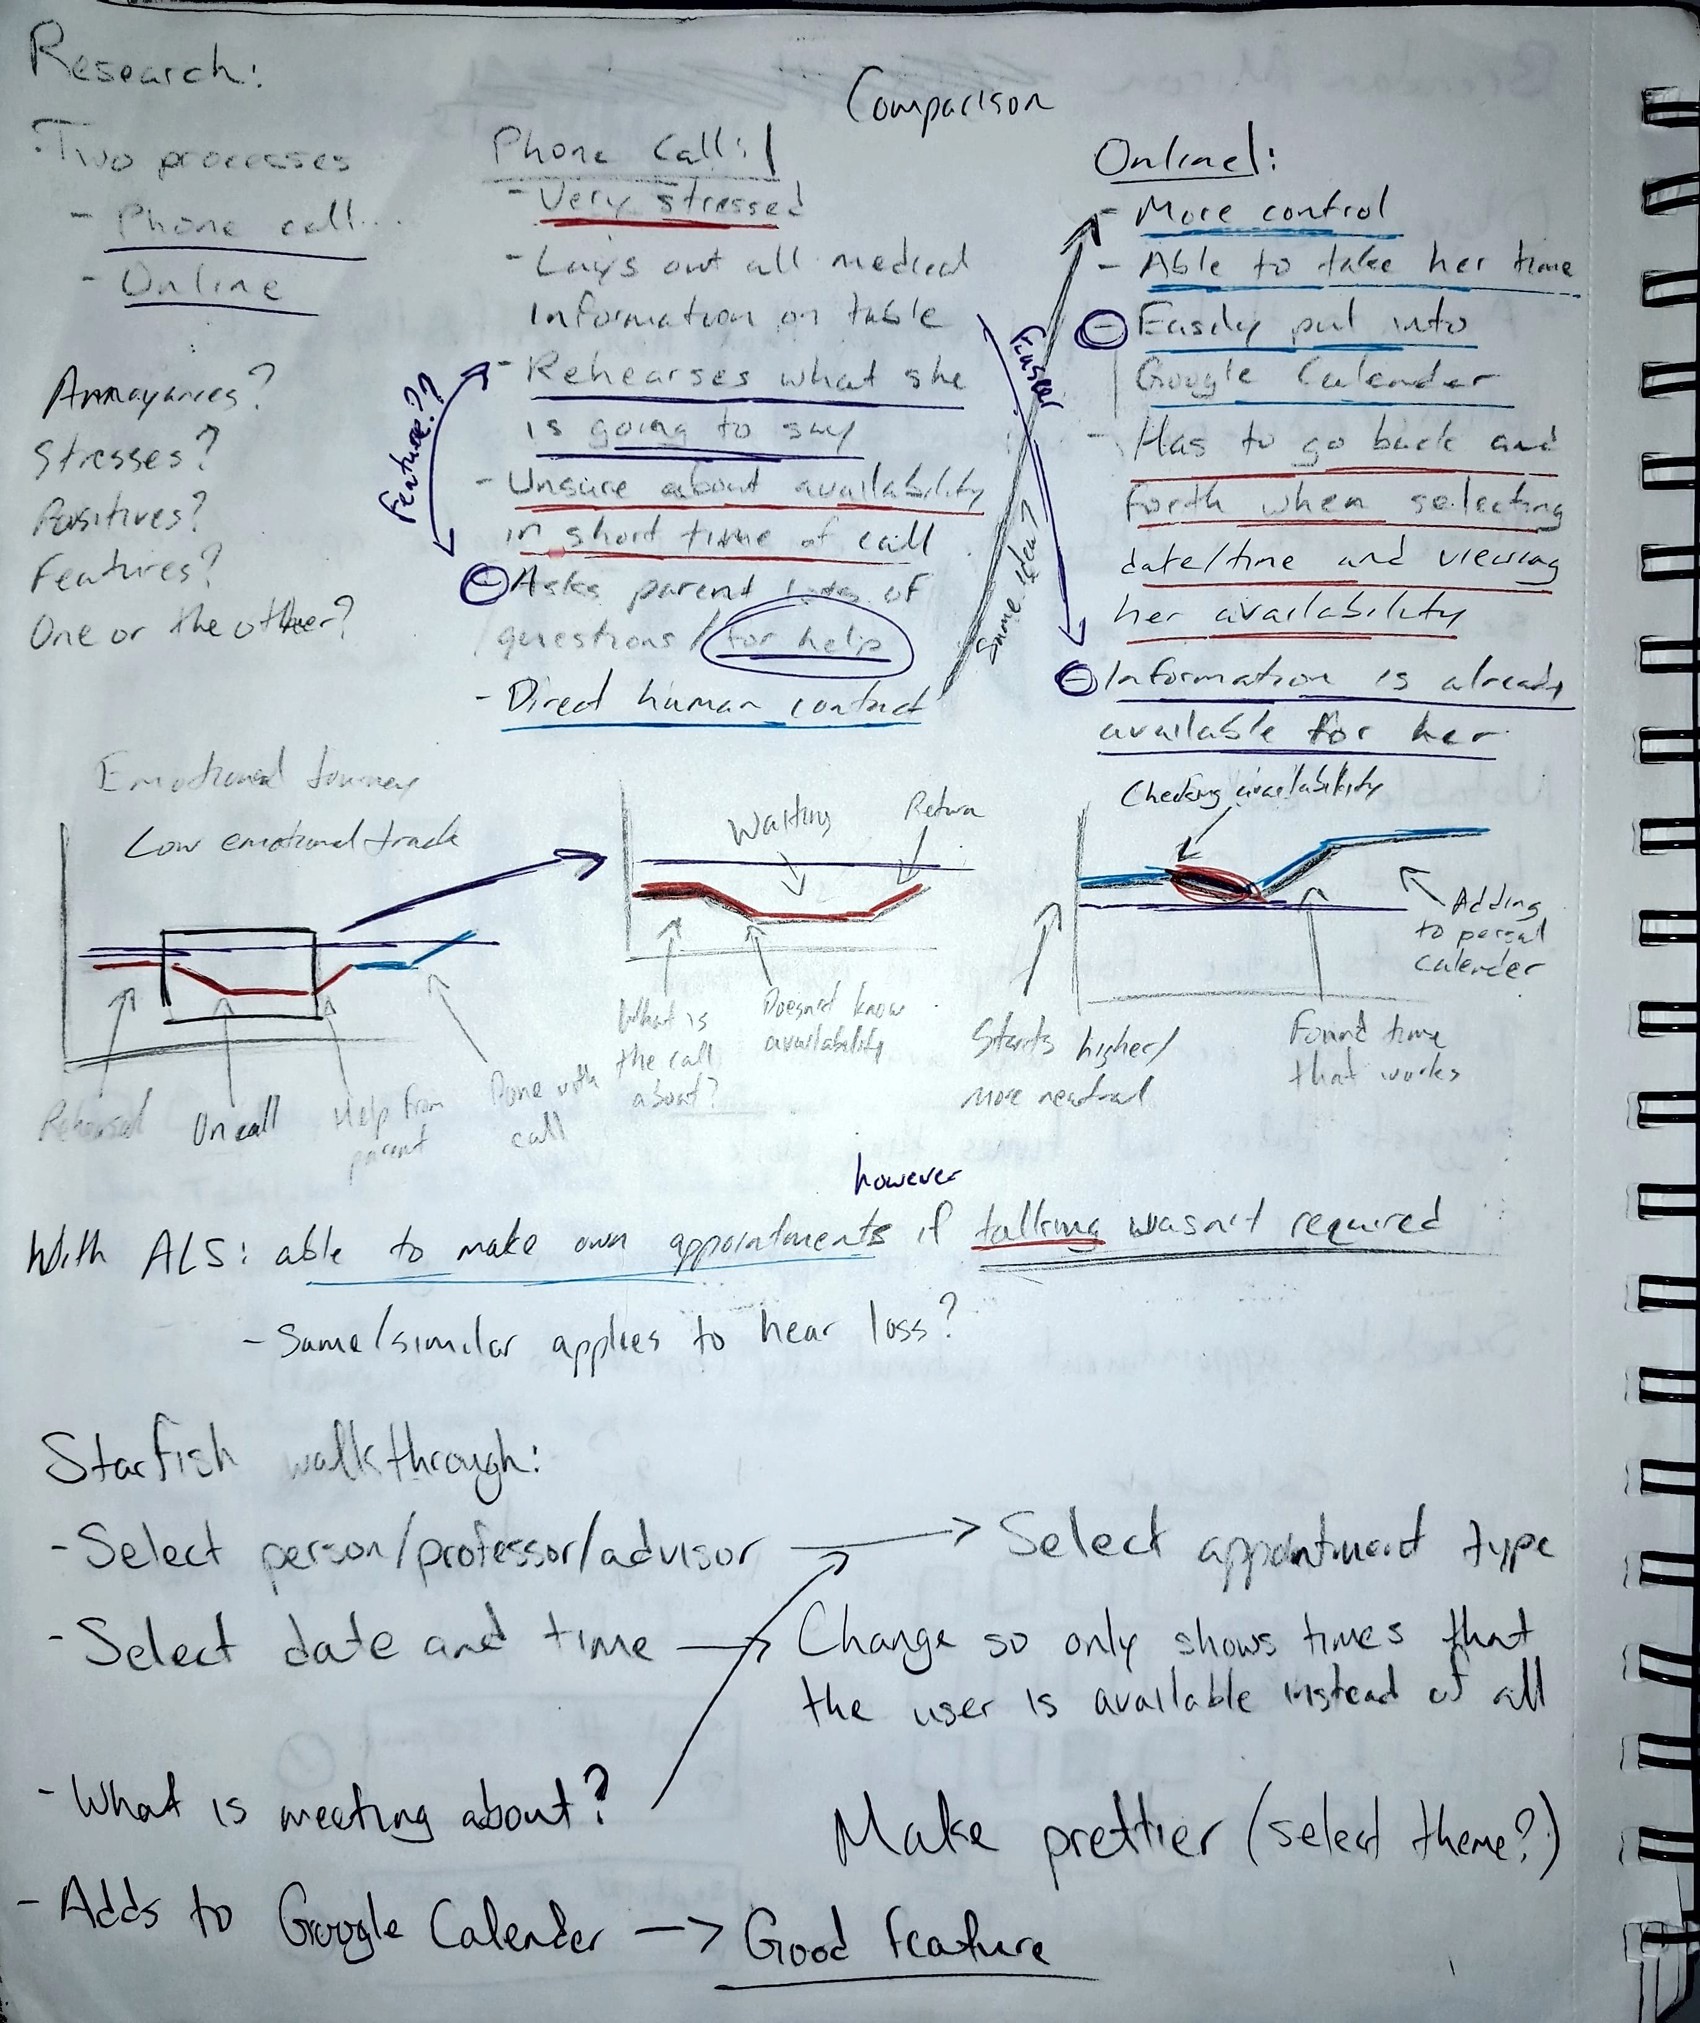 Research:
Two processes
- Phone call
- Online
Annoyances?
Stresses?
Positives?
Features?
One or the other?
Comparison
Phone Call:
- Very stressed
- Lays out all medical
information on table
- Rehearses what she
is going to say
- Unsure about availability
in short time of call
- Asks parent lots of
questions/for help
- Direct human contact
Feature??
Easier
Same idea?
Online:
- More control
- Able to take her time
- Easily put into
Google Calender
- Has to go back and
forth when selecting
date/time and viewing
her availability
- Information is already
available for her
Emotional Journey
Low emotional track
Rehearsal
On call
Help from
parent
Done with
call
Waiting
Return
What is
the call
about?
Doesn't know
availability
Checking availability
Adding
to persal
calender
Starts higher/
more neutral
Found time
that works
however
With ALS: able to make own appointments if talking wasn't required
- Same/similar applies to hear loss?
Starfish walkthrough:
- Select person/professor/advisor → Select appointment type
- Select date and time → Change so only shows times that
the user is available instead of all
- What is meeting about?
Make prettier (select theme?)
- Adds to Google Calender → Good feature